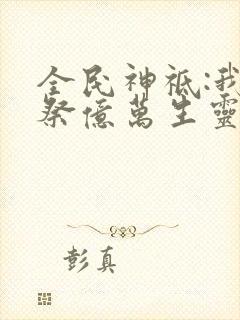 全民神祇:我
祭億萬生靈
彭真